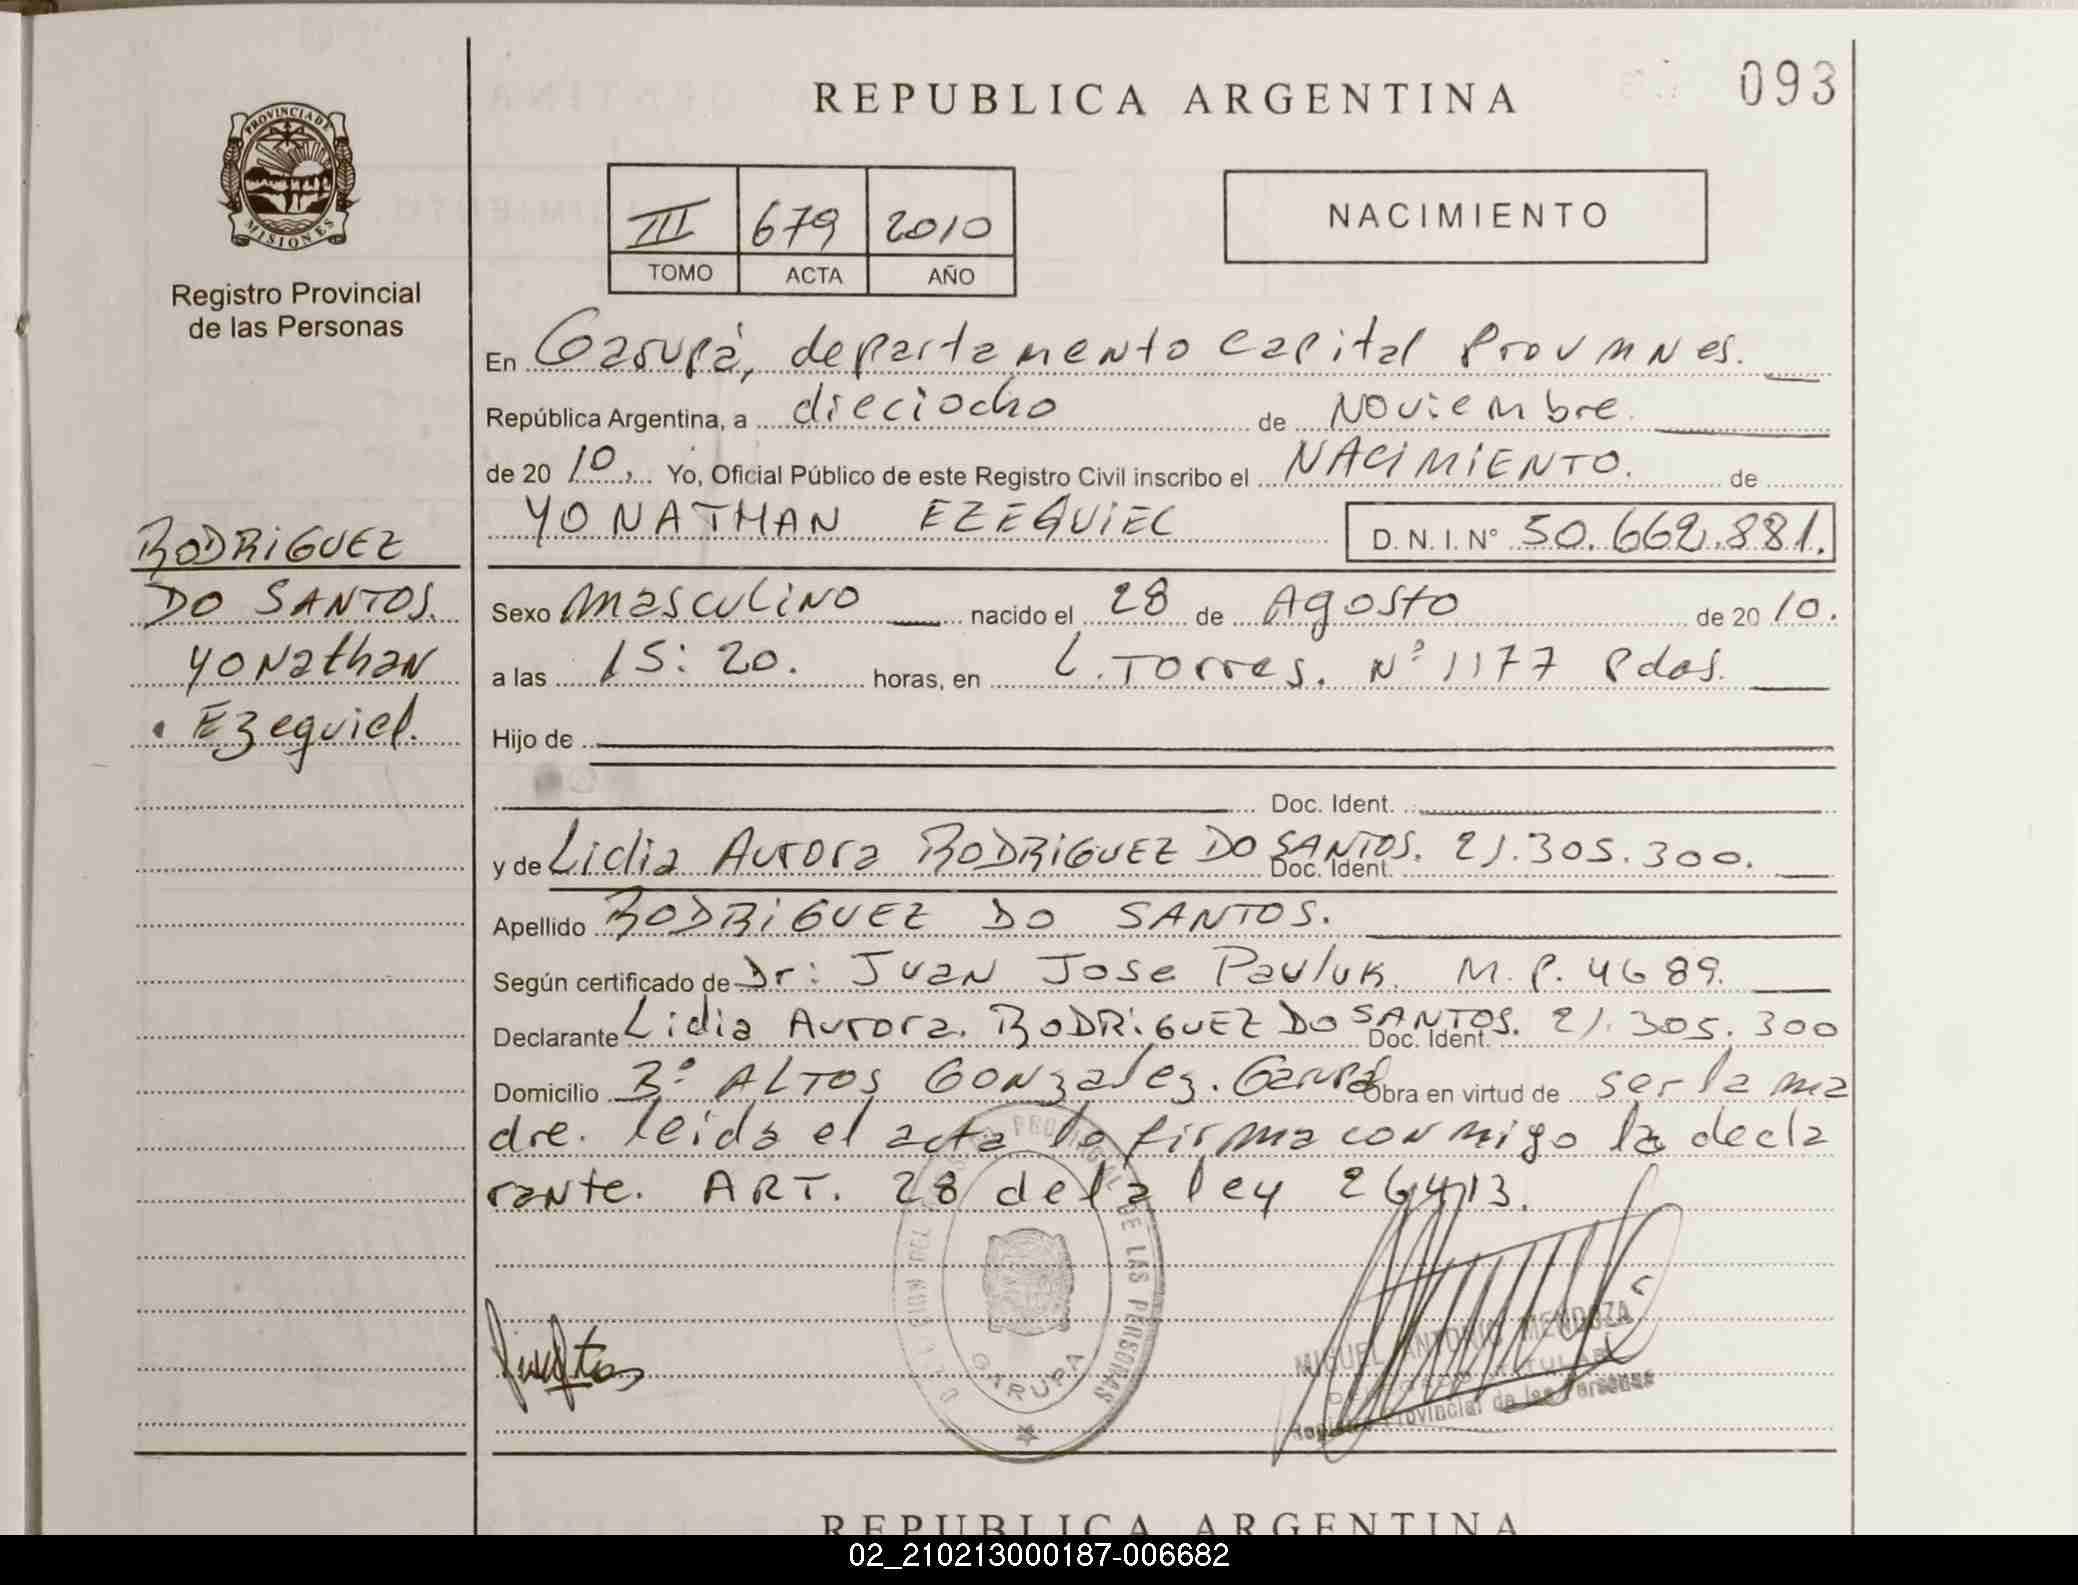 REPUBLICA ARGENTINA
093
PROVINCIA DE
MISIONES
Registro Provincial
de las Personas
III 679 2010
TOMO ACTA AÑO
NACIMIENTO
En Garupá, departamento capital Prov MNes.
República Argentina, a dieciocho de Noviembre.
de 20 10, Yo, Oficial Público de este Registro Civil inscribo el NACIMIENTO. de
YONATHAN EZEQUIEL D. N. I. N° 50.662.881.
RODRIGUEZ
DO SANTOS.
YONathan
Ezequiel.
Sexo masculino nacido el 28 de Agosto de 20 10.
a las 15:20. horas, en L. Torres. N° 1177 Pdas.
Hijo de
Doc. Ident.
y de Lidia Aurora RODRIGUEZ DO SANTOS. Doc. Ident. 21.305.300.
Apellido RODRIGUEZ DO SANTOS.
Según certificado de Dr: Juan Jose Pauluk. M.P. 4689.
Declarante Lidia Aurora. RODRIGUEZ DO SANTOS. Doc. Ident. 21.305.300
Domicilio B° ALTOS Gonzalez. Garupá Obra en virtud de ser la ma
dre. leida el acta la firma conmigo la decla
rante. ART. 28 de la ley 26413.
PROVINCIAL DE LAS PERSONAS
GARUPA
MIGUEL ANTONIO MENDOZA
Registro Provincial de las Personas
REPUBLICA ARGENTINA
02_210213000187-006682